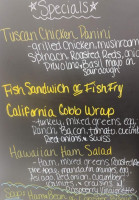 Specials
Tuscan Chicken Panini
- grilled chicken, mushroom
spinach, Roasted Reds, and
Provolone, Basil mayo on
Sourdough
Fish Sandwich or Fish Fry
California Cobb Wrap
- turkey, mixed greens, egg
Ranch, Bacon, tomato,
Red onions, Swiss
Hawaiian Ham Salad
- Ham, mixed greens, Roasted
pine apple, mandarin oranges,
Asiago, Red onion, cucumber
Raspberry Vinaigrette
Soups